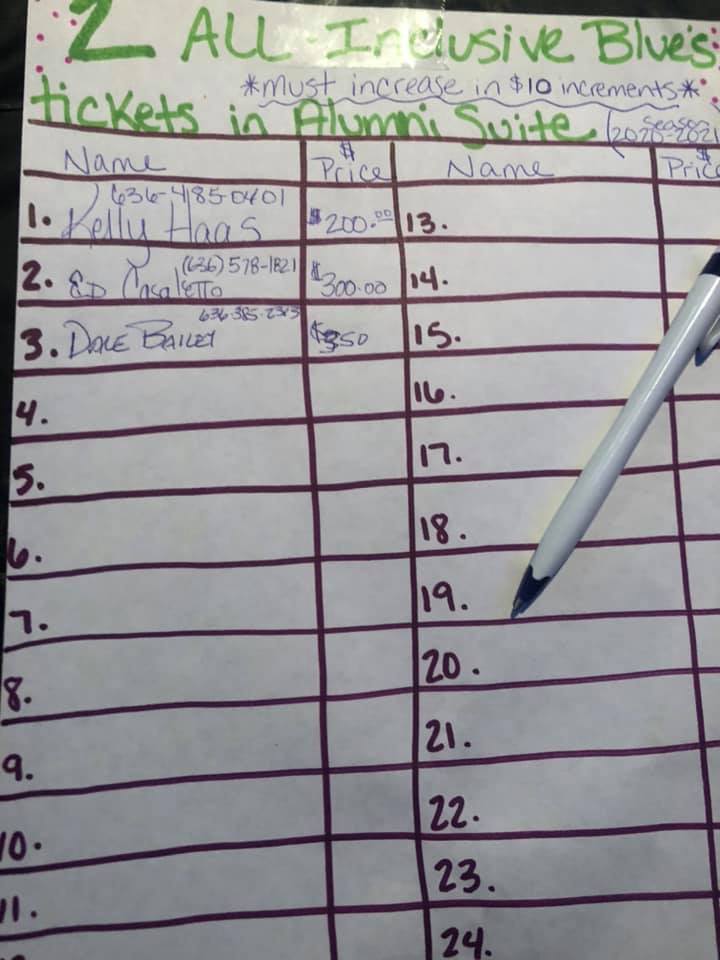 2 ALL-Inclusive Blue's
*must increase in $10 increments*
tickets in Alumni Suite (2020-2021
season
Name $ Price Name $ Price
636-485-0401
1. Kelly Haas $200.00 13.
(636) 578-1821
2. ED $300.00 14.
636-385-
3. DALE BAILEY $350 15.
4. 16.
5. 17.
6. 18.
7. 19.
8. 20.
9. 21.
10. 22.
11. 23.
24.